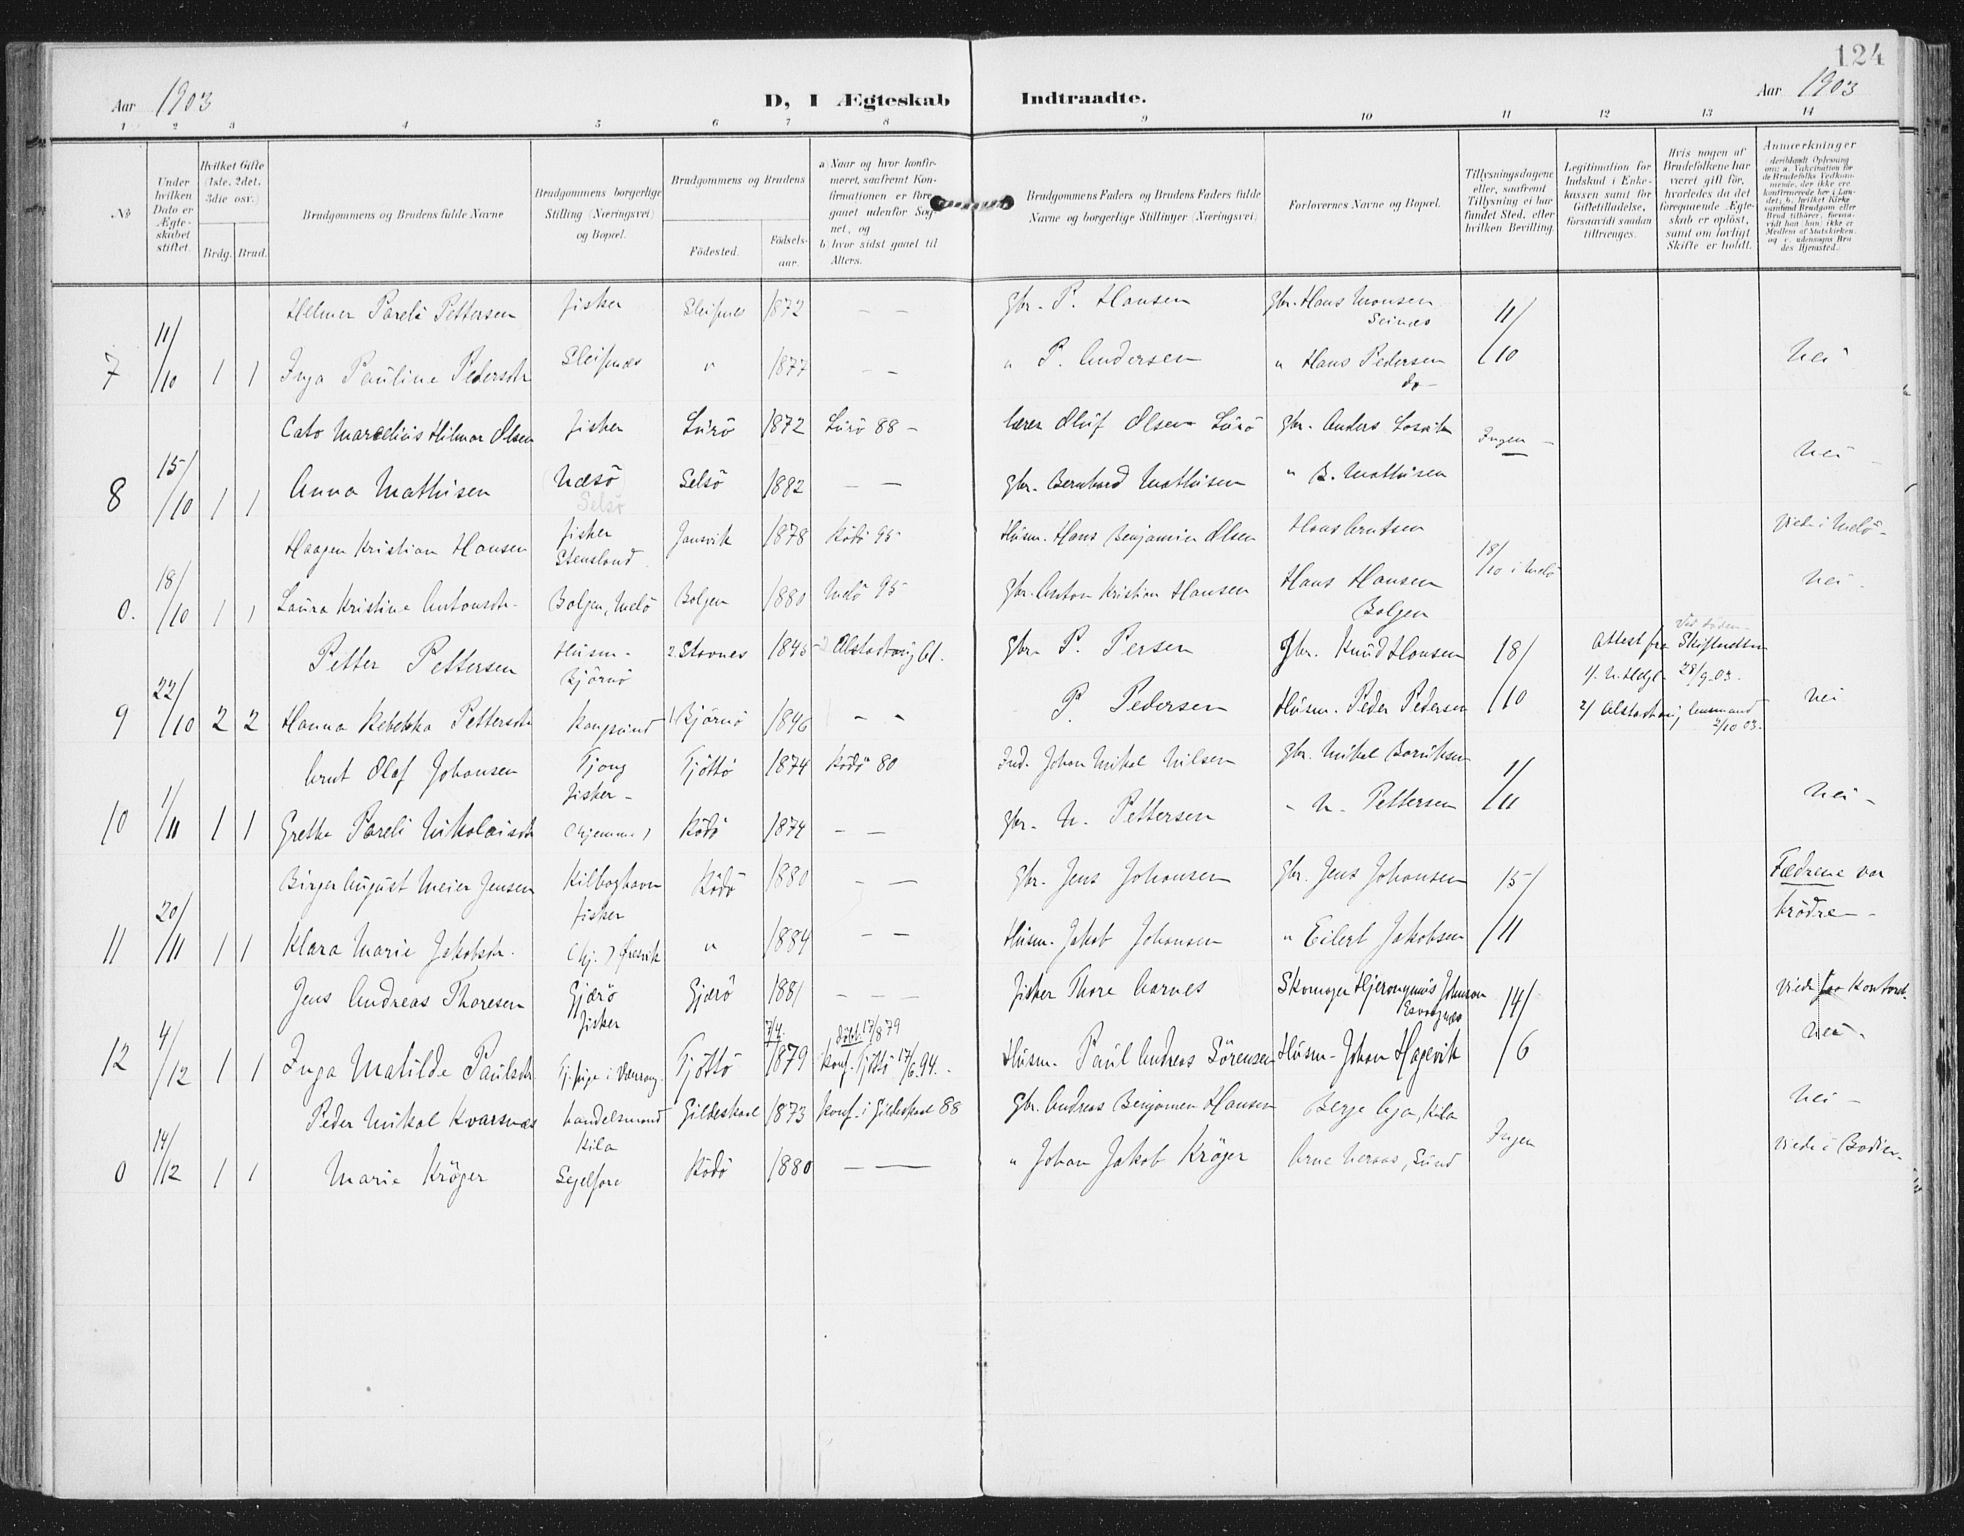 124
Aar 1903
D, I Ægteskab Indtraadte.
Aar 1903
1 2 3 4 5 6 7 8 9 10 11 12 13 14
No
Under hvilken Dato er Ægteskabet stiftet.
Hvilket Gifte (1ste, 2det, 3die osv.)
Brdg. Brud.
Brudgommens og Brudens fulde Navne
Brudgommens borgerlige Stilling (Næringsvei) og Bopæl.
Brudgommens og Brudens
Fødested.
Fødselsaar.
a Naar og hvor konfirmeret, saafremt Konfirmationen er foregaaet udenfor Sognet, og
b) hvor sidst gaaet til Alters.
Brudgommens Faders og Brudens Faders fulde Navne og borgerlige Stillinger (Næringsvei).
Forlovernes Navne og Bopæl.
Tillysningsdagene eller, saafremt Tillysning ei har fundet Sted, efter hvilken Bevilling.
Legitimation for Indskud i Enkekassen samt for Giftetilladelse, forsaavidt saadan tiltrænges.
Hvis nogen af Brudefolkene har været gift før, hvorledes da det foregaaende Ægteskab er opløst, samt om lovligt Skifte er holdt.
Anmærkninger
Helmer Pareli Pettersen fisker Sleipnes 1872 — — gbr. P. Hansen gbr. Hans Monsen Seines 11/
7 11/10 1 1 Inga Pauline Pedersdtr Sleipnæs " 1877 — — " P. Andersen " Hans Pedersen do — /10 Nei
Cato Marcelius Hilmar Olsen fisker Lurö 1872 Lurö 88 — lærer Oluf Olsen Lurö gbr. Anders Losvik Ingen —
8 15/10 1 1 Anna Mathisen Næsö Selsö Selsö 1882 — — gbr. Bernhard Mathisen " B. Mathisen Nei —
Haagen Kristian Hansen fisker Stensland Jansvik 1878 Rödö 95 Husm. Hans Benjamin Olsen Hans Arntsen 18/10 i Melö Viede i Melö —
0. 18/10 1 1 Laura Kristine Antonsdtr. Bolgen, Melö Bolgen 1880 Melö 95 gbr. Anton Kristian Hansen Hans Hansen Bolgen Nei —
Petter Pettersen Husm. — Björnö 2 Stovnes 1845 gbr. P. Persen Gbr. Knud Hansen 18/ Attest fra Skifteretten
28/9 03.
9 22/10 2 2 Hanna Rebekka Pettersdtr Kangsund 1 Björnö 1846 — — P. Pedersen Husm. Peder Pedersen /10 2/ Alstadhaug Lensmand 2/10 03. Nei
Arnt Olaf Johansen Tjong fisker — Tjöttö 1874 Rödö 80 Ind. Johan Mikal Nilsen gbr. Mikal 1/
10 1/11 1 1 Grethe Pareli Nikolaisdtr (hjemme) Rödö 1874 — — gbr. N. Pettersen — N. Pettersen /11 Nei —
Birger August Meier Jensen Kilboghavn fisker Rödö 1880 — — gbr. Jens Johansen gbr. Jens Johansen 15/ Fædrene var brödre —
11 20/11 1 1 Klara Marie Jakobsdtr. (hj.) Öresvik " 1884 — — Husm. Jakob Johansen " Eilert Jakobsen /11
Jens Andreas Thoresen Gjærö fisker Gjærö 1881 — — — fisker Thore Aarnes Skomager Hjeronymus Johnson 14/ Viede paa Kontoret.
12 4/12 1 1 Inga Matilde Paulsdtr. Tj. pige i Tjöttö 7/4 1879 döbt 17/8 79 konf. Tjöttö 17/6 94. Husm. Paul Andreas Sörensen Husm. Johan Hagevik /6 Nei —
Peder Mikal Kvarsnæs handelsmand Kila Gildeskaal 1873 Konf. i Gildeskaal 88 Gbr. Andreas Benjamin Hansen Berge Aga, Kila Ingen Nei —
0 14/12 1 1 Marie Kröger Segelfore Rödö 1880 — — " Johan Jakob Kröger Arne Neraas, Sund Viede i Bodin.